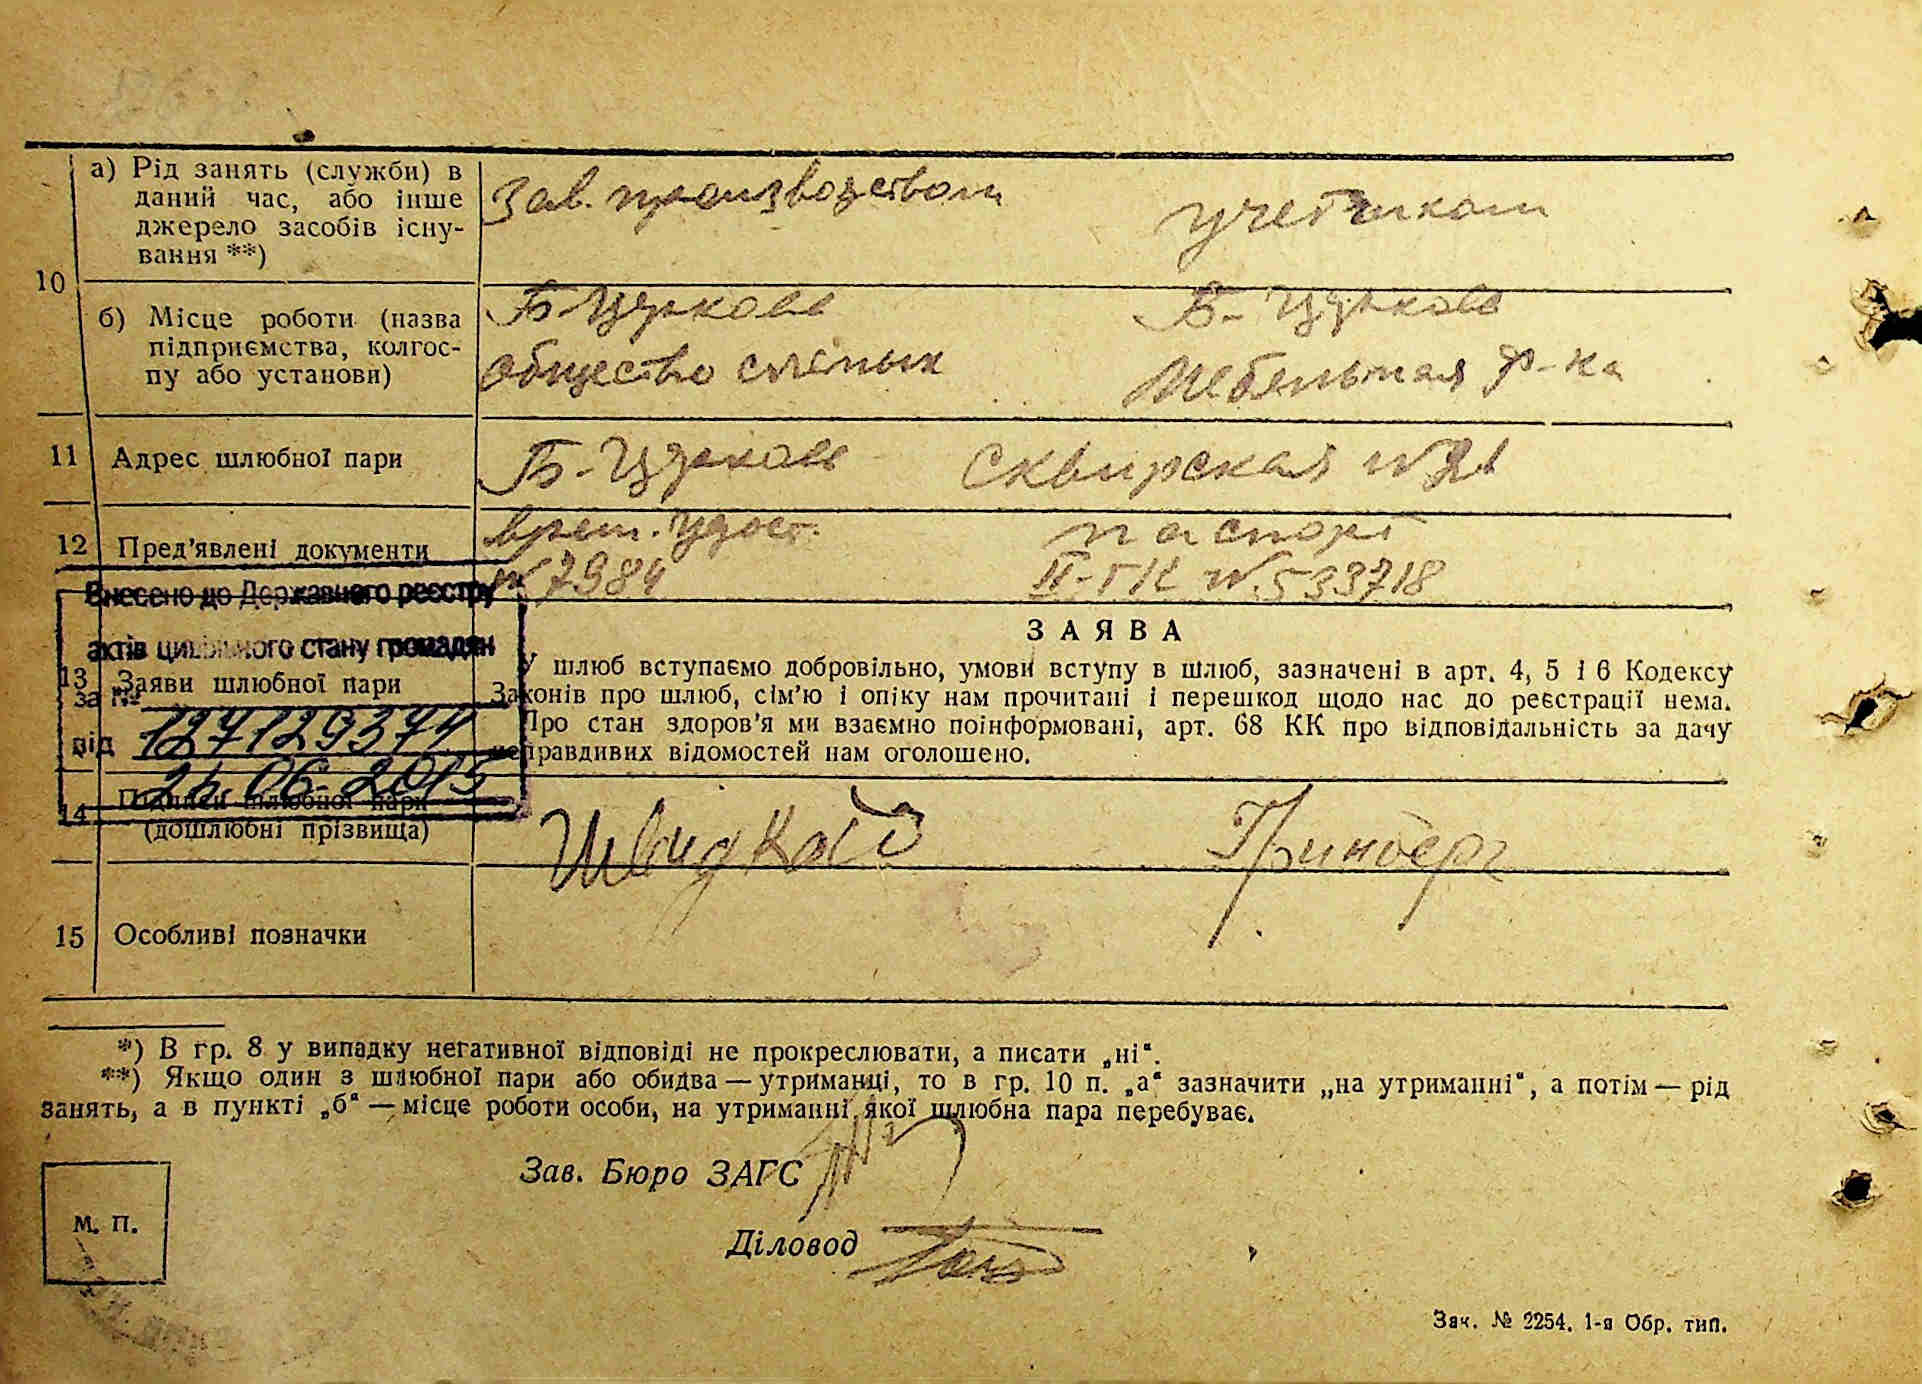 10
а) Рід занять (служби) в
даний час, або інше
джерело засобів існу-
вання **)
Зав. производством
учетчиком
б) Місце роботи (назва
підприємства, колгос-
пу або установи)
Б-Церковь
общество слепых
Б-Церковь
Мебельная ф-ка
11 Адрес шлюбної пари
Б-Церковь Сквирская №
12 Пред'явлені документи
врем. удост.
№ 7984
паспорт
II-ГК №. 533718
Внесено до Державного реєстру
актів цивільного стану громадян
за №
127129374
від
06-2015
13 Заяви шлюбної пари
ЗАЯВА
У шлюб вступаємо добровільно, умови вступу в шлюб, зазначені в арт. 4, 5 і 6 Кодексу
Законів про шлюб, сім'ю і опіку нам прочитані і перешкод щодо нас до реєстрації нема.
Про стан здоров'я ми взаємно поінформовані, арт. 68 КК про відповідальність за дачу
неправдивих відомостей нам оголошено.
14 Підписи шлюбної пари
(дошлюбні прізвища)
Швидкой
Гринберг
15 Особливі позначки
*) В гр. 8 у випадку негативної відповіді не прокреслювати, а писати „ні“.
**) Якщо один з шлюбної пари або обидва — утриманці, то в гр. 10 п. „а“ зазначити „на утриманні“, а потім — рід
занять, а в пункті „б“ — місце роботи особи, на утриманні якої шлюбна пара перебуває.
Зав. Бюро ЗАГС
М. П.
Діловод
Зак. № 2254. 1-я Обр. тип.